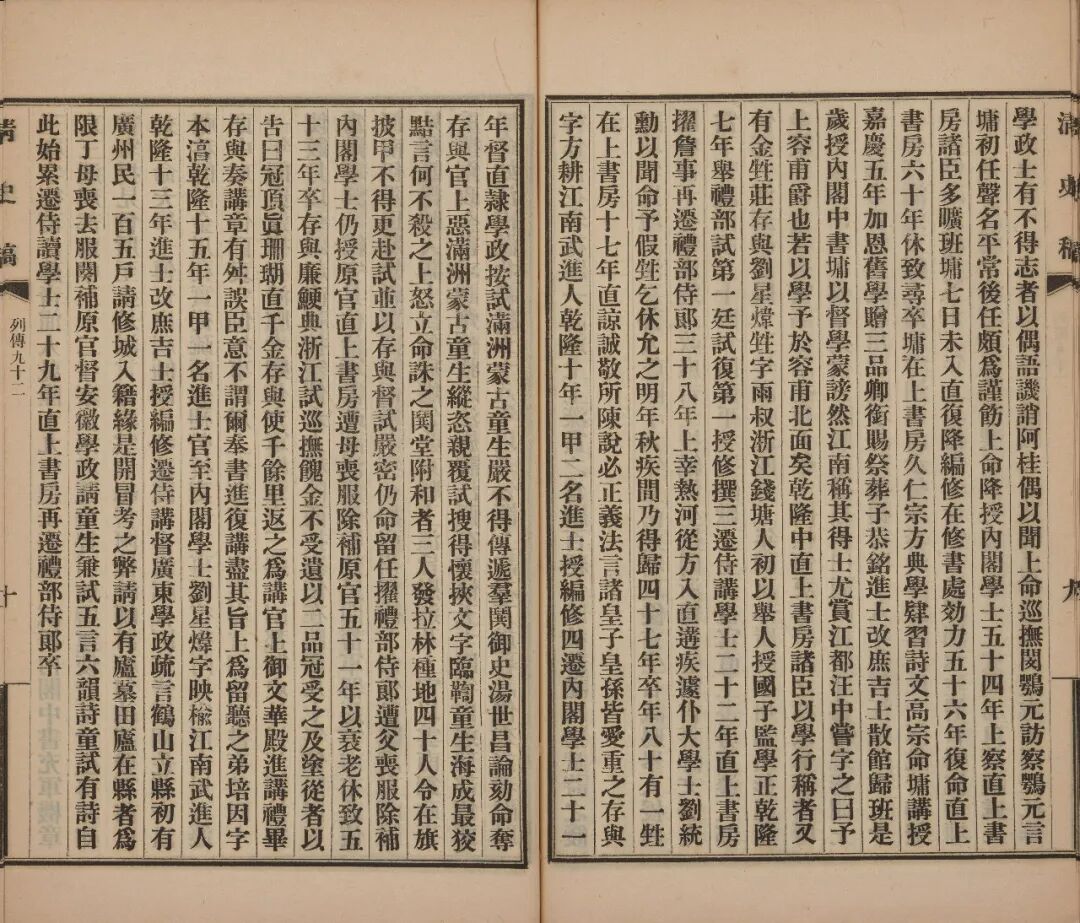 清史稿
九
學政士有不得志者以偶語譏誚阿桂偶以聞上命巡撫閔鶚元訪察鶚元言
墉初任聲名平常後任頗爲謹飭上命降授內閣學士五十四年上察直上書
房諸臣多曠班墉七日未入直復降編修在修書處効力五十六年復命直上
書房六十年休致尋卒墉在上書房久仁宗方典學肄習詩文高宗命墉講授
嘉慶五年加恩舊學贈三品卿銜賜祭葬子恭銘進士改庶吉士散館歸班是
歲授內閣中書墉以督學蒙謗然江南稱其得士尤賞江都汪中嘗字之曰予
上容甫爵也若以學予於容甫北面矣乾隆中直上書房諸臣以學行稱者又
有金甡莊存與劉星煒甡字雨叔浙江錢塘人初以舉人授國子監學正乾隆
七年舉禮部試第一廷試復第一授修撰三遷侍講學士二十二年直上書房
擢詹事再遷禮部侍郎三十八年上幸熱河從方入直遘疾遽仆大學士劉統
勳以聞命予假甡乞休允之明年秋疾間乃得歸四十七年卒年八十有一甡
在上書房十七年直諒誠敬所陳說必正義法言諸皇子皇孫皆愛重之存與
字方耕江南武進人乾隆十年一甲二名進士授編修四遷內閣學士二十一
年督直隸學政按試滿洲蒙古童生嚴不得傳遞羣鬨御史湯世昌論劾命奪
存與官上惡滿洲蒙古童生縱恣親覆試搜得懷挾文字臨鞫童生海成最狡
黠言何不殺之上怒立命誅之鬨堂附和者三人發拉林種地四十人令在旗
披甲不得更赴試並以存與督試嚴密仍命留任擢禮部侍郎遭父喪服除補
內閣學士仍授原官直上書房遭母喪服除補原官五十一年以衰老休致五
十三年卒存與廉鯁典浙江試巡撫餽金不受遺以二品冠受之及塗從者以
告曰冠頂眞珊瑚直千金存與使千餘里返之爲講官上御文華殿進講禮畢
存與奏講章有舛誤臣意不謂爾奉書進復講盡其旨上爲留聽之弟培因字
本淳乾隆十五年一甲一名進士官至內閣學士劉星煒字映楡江南武進人
乾隆十三年進士改庶吉士授編修遷侍講督廣東學政疏言鶴山立縣初有
廣州民一百五戶請修城入籍緣是開冒考之弊請以有廬墓田廬在縣者爲
限丁母喪去服闋補原官督安徽學政請童生兼試五言六韻詩童試有詩自
此始累遷侍讀學士二十九年直上書房再遷禮部侍郎卒
清史稿
列傳九十二
十